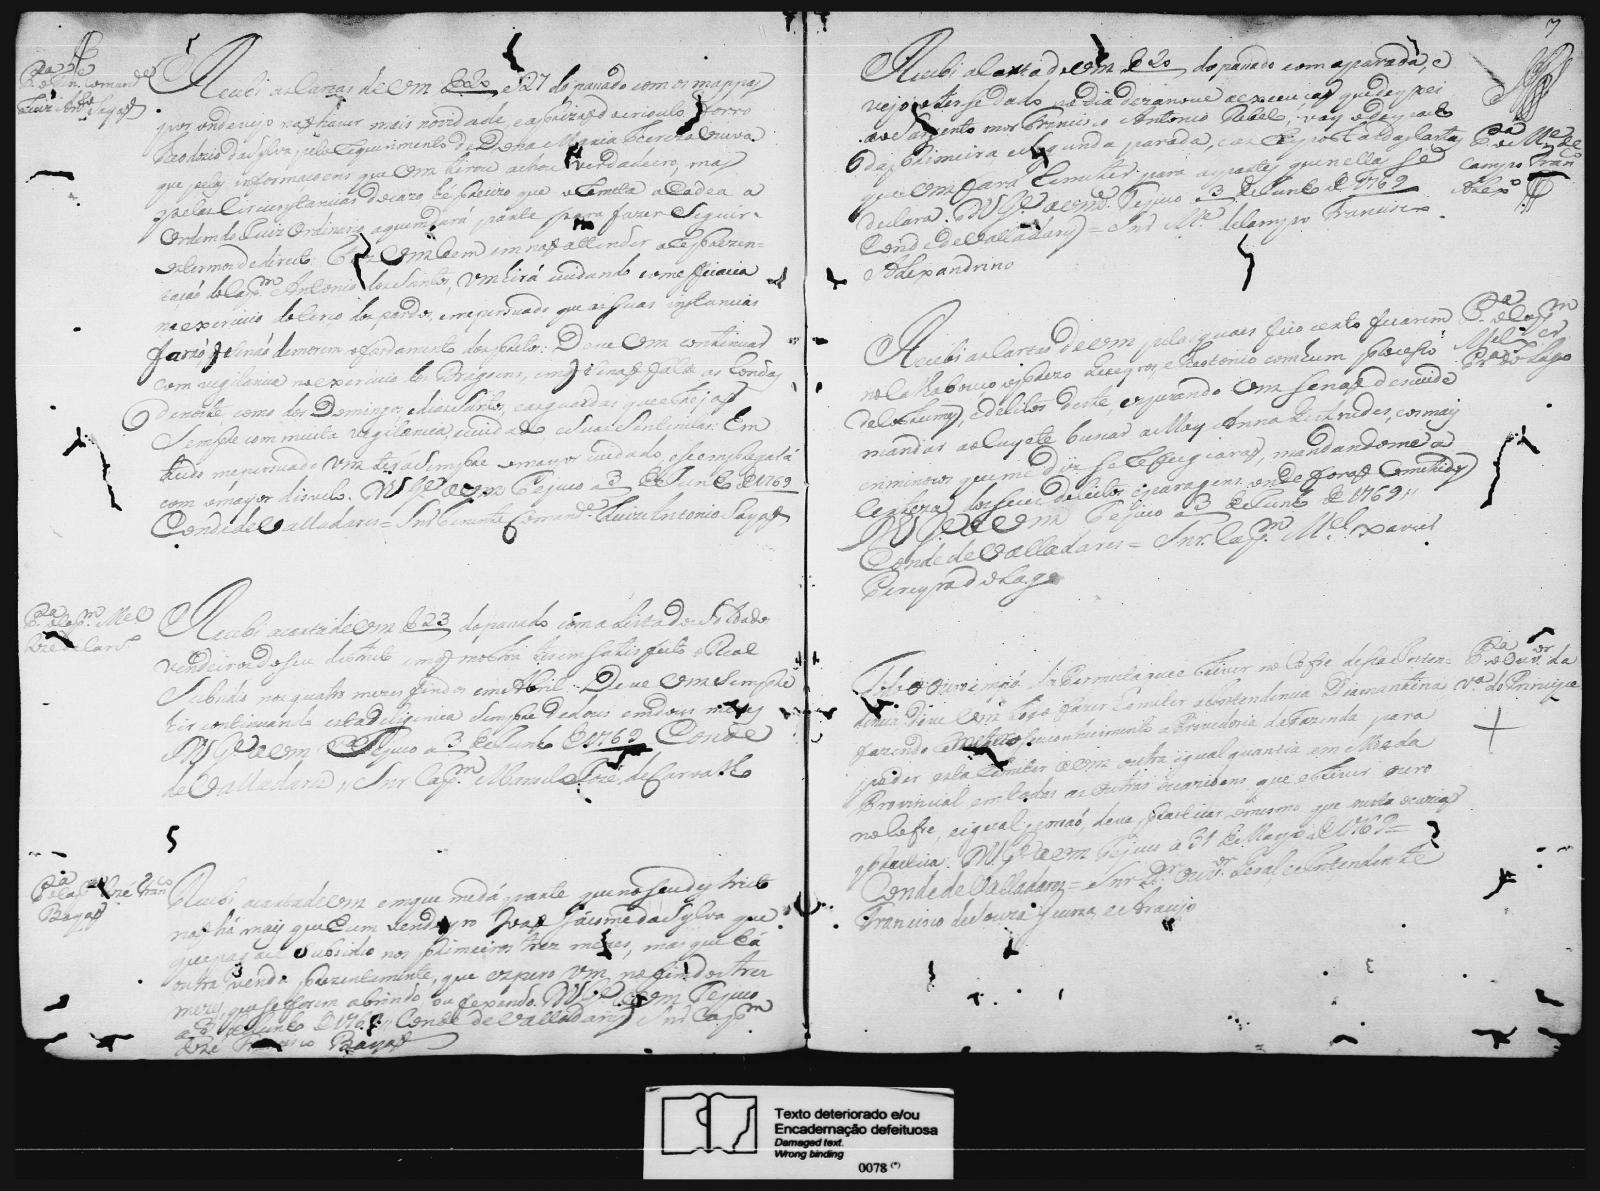 Pª o Ten. Comande
Luiz Antº Sayaõ
Recebi as Cartas de Vm de 20 e 27 do passado com os mappas
por onde vejo naõ haver mais novidade, e a prizaõ do crioulo forro
Theodozio da Sylva pelo requerimento de Dona Maria Thereza viuva
que pelas informaçoens que Vm tirou achou verdadeiro, mas
pelas Circunstancias do cazo hé precizo que o remeta a Cadea a
ordem do Juiz Ordinario a quem dará parte para fazer seguir
os termos de direito. Fez Vm bem em naõ attender a reprezen=
taçaõ do Capm Antonio dos Santos, Vm hirá cuidando com efficacia
no exercicio do terço dos pardos, e na persuado que as suas instancias
faraõ se naõ demorem o fardamento dos pretos: Deve Vm continuar
com vigilancia no exercicio dos Dragoens, e naõ falte as rondas
de noite, como dos Domingos, e dias Santos, e as guardas que estejaõ
sempre com muita vigilancia, e cuidado e suas Sentinelas. Em
tudo me persuado Vm terá sempre o mayor cuidado, e se empregará
com o mayor disvelo. Ds Gde a Vm Tejuco a 3 de Junho de 1769
Conde de Valladares = Snr Tenente Comande Luiz Antonio Sayaõ
Pª o Capm Mel
José de Carvº
Recebi a carta de Vm de 23 do passado com a Lista dos Soldados
vendeiros do seu districto em q mostra terem satisfeito o Real
Subsidio nos quatro mezes findos em Abril: Deve Vm sempre
hir continuando esta diligencia sempre de dous em dous mezes
Ds Gde a Vm Tejuco a 3 de Junho de 1769 Conde
de Valladares, Snr Capm Manoel Jozé de Carvalho
Pª o Capm José Franco
Bayaõ
Recebi a carta de Vm em que me dá parte que no seu destricto
naõ há mais que hum vendeyro Joaõ Jácome da Sylva que
que paga o subsidio nos primeiros trez mezes, mas que há
outra venda prezentemente, que espero Vm no fim dos trez
mezes, que se forem abrindo, ou fexando. Ds Gde a Vm Tejuco
a 3 de Junho de 1769, Conde de Valladares Snr Capm
José Francisco Bayaõ
7
Recebi a Carta de Vm de 20 do passado com a parada, e
vejo o ter se dado no dia dezanove a execuçaõ que deyxei
ao Sargento mor Francisco Antonio Rebelo; vay o despacho
da primeira e segunda parada, e as respostas das Cartas
que Vm fará remeter para as partes, que nellas se
declara. Ds Gde a Vm Tejuco 3 de Junho de 1769
Conde de Valladares = Snr Me de Campo Francisco
Alexandrino
Pª o Me de
Campo Franco
Alexº
Recebi as Cartas de Vm pelas quaes fico certo ficarem
no calabouço os prezos negros, e Theotonio com hum processo
de testemunhas, e delictos deste, esperando Vm se naõ descuide
mandar ao Luyete buscar a May Anna Gertrudes, e os mais
criminosos que me diz se refugiaraõ, mandandome a
Certeza dos seus delictos, e paragens, onde foraõ Cometidos
Ds Gde a Vm Tejuco a 3 de Junho de 1769,,
Conde de Valladares = Snr. Capm Mel Xavier
Pereyra do Lago
Pª o Capm
Mel Xer
Prª do Lago
Todo o ouro em pó da permuta que estiver no Cofre desta Inten=
dencia deve Vm logo fazer remeter a Intendencia Diamantina
fazendo com conhecimento a Provedoria da Fazenda para
poder esta remeter a Vm outra igual quantia em Moeda
Provincial em todas as outras ocazioens que estiver ouro
no Cofre, e igual porçaõ, deve praticar o mesmo que nesta ocaziaõ
practica. Ds Gde a Vm Tejuco a 31 de Mayo de 1769 =
Conde de Valladares = Snr Dr. Ouvor Geral, e Intendente
Francisco de Souza Guerra e Araujo
Pª o Ouvor da
Vª do Principe
Texto deteriorado e/ou
Encadernação defeituosa
Damaged text.
Wrong binding
0078 (*)